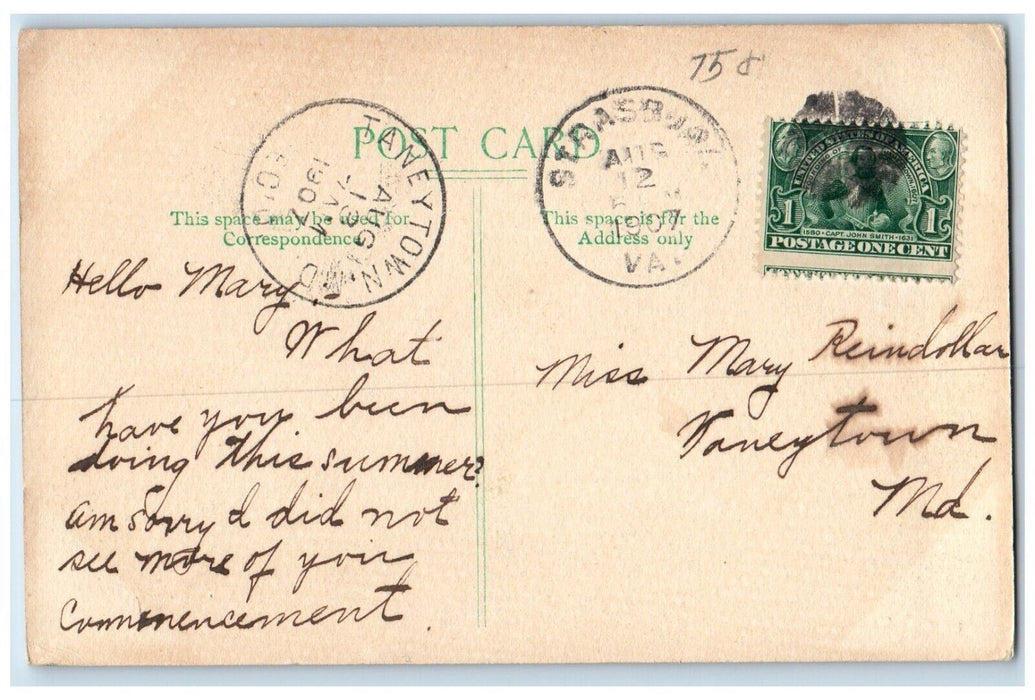 758
POST CARD
TANEYTOWN, MD.
AUG
13
7 AM
1907
REC'D
STRASBURG
AUG
12
1907
VA.
UNITED STATES OF AMERICA
1 1
1580 · CAPT. JOHN SMITH · 1631
POSTAGE ONE CENT
This space may be used for
Correspondence
This space is for the
Address only
Hello Mary.
What
have you been
doing this summer?
am sorry I did not
see more of you in
commencement.
Miss Mary Reindollar
Taneytown
Md.